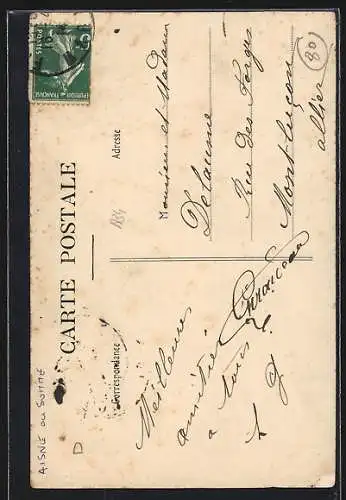 CARTE POSTALE
Correspondance
Adresse
Meilleures
amitiés
a tous
Monsieur et Madame
Delaume
Rue des Forges
Montluçon
allier
80
AISNE ou SOMME
D
REPUBLIQUE FRANÇAISE
POSTES